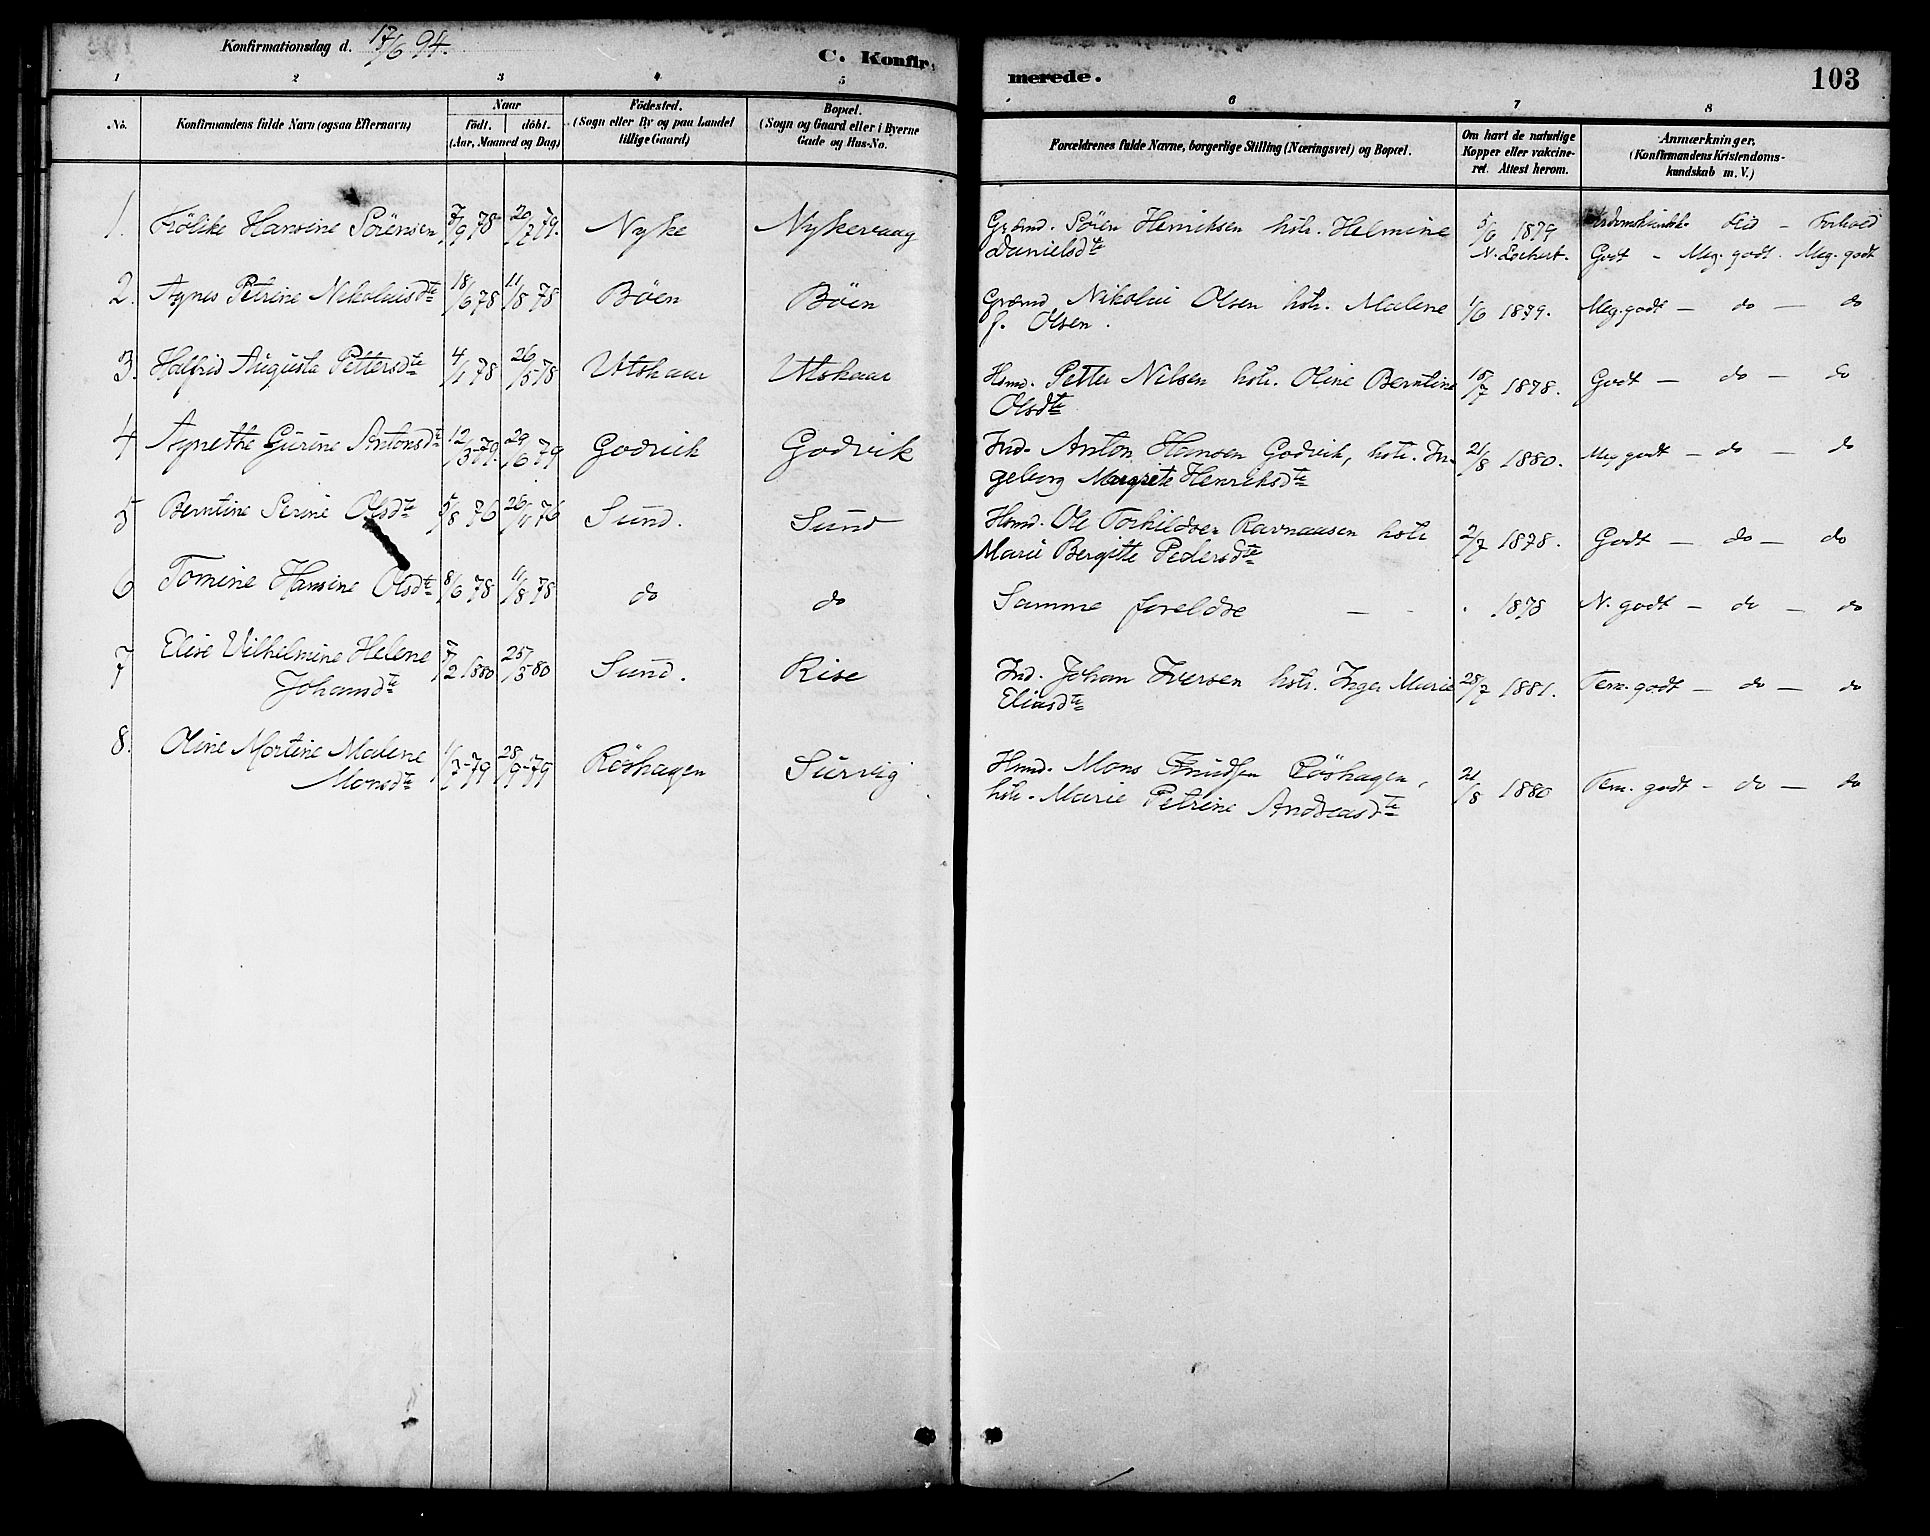 Konfirmationsdag d. 17/6 94.
C. Konfir-
merede.
103
1 2 3 4 5 6 7 8
No.
Konfirmandens fulde Navn (ogsaa Efternavn)
Naar
födt. döbt.
(Aar, Maaned og Dag)
Födested.
(Sogn eller By og paa Landet
tillige Gaard)
Bopæl.
(Sogn og Gaard eller i Byerne
Gade og Hus-No.
Forældrenes fulde Navne, borgerlige Stilling (Næringsvei) og Bopæl.
Om havt de naturlige
Kopper eller vakcine-
ret. Attest herom.
Anmærkninger.
(Konfirmandens Kristendoms-
kundskab m. V.)
1. Frölike Hansine Sörensen 7/9 78 20/7 79. Nyke Nykevaag Grdmd. Sören Henriksen hstr. Helmine 5/6 1879 Flid - Forhold
Danielsdte N. Lockert. Godt - Meg. godt. Meg. godt
2. Agnes Petrine Nikolaisdte 18/6 78 11/8 78 Böen Böen Grdmd Nikolai Olsen hstr. Malene 1/6 1879. Meg. godt - do - do
f. Olsen.
3. Halfrid Augusta Pettersdte 4/1 78 26/5 78 Utskaar Utskaar Hsmd. Petter Nilsen hstr. Oline Berntine 18/7 1878. Godt - do - do
Olsdte
4 Agnethe Gurine Antonsdte 12/3-79. 29/6 79 Godvik Godvik Ind. Anton Hansen Godvik, hstr. In- 21/8 1880. Meg godt - do - do
geborg Margrete Henriksdte
5 Berntine Serine Olsdte 5/8 76 26/11 76 Sund. Sund Hsmd. Ole Torkildsen Ravnaasen hstr 2/7 1878. Godt - do - do
Marie Bergitte Pedersdte
6 Tomine Hansine Olsdte 8/6 78 11/8 78 do do Samme foreldre - - . 1878 N. godt - do - do
7 Elise Vilhelmine Helene 7/2 1880 25/3 80 Sund. Rise Ind. Johan Iversen hstr. Inger Marie 28/7 1881. Tem. godt - do - do
Johansdte Eliasdte
8. Oline Martine Malene 1/7-79 28/9-79 Röshagen Survig Hsmd. Mons Knudsen Röshagen, 21/8 1880 Tem. godt - do - do
Monsdte hstr. Marie Petrine Andreasdte